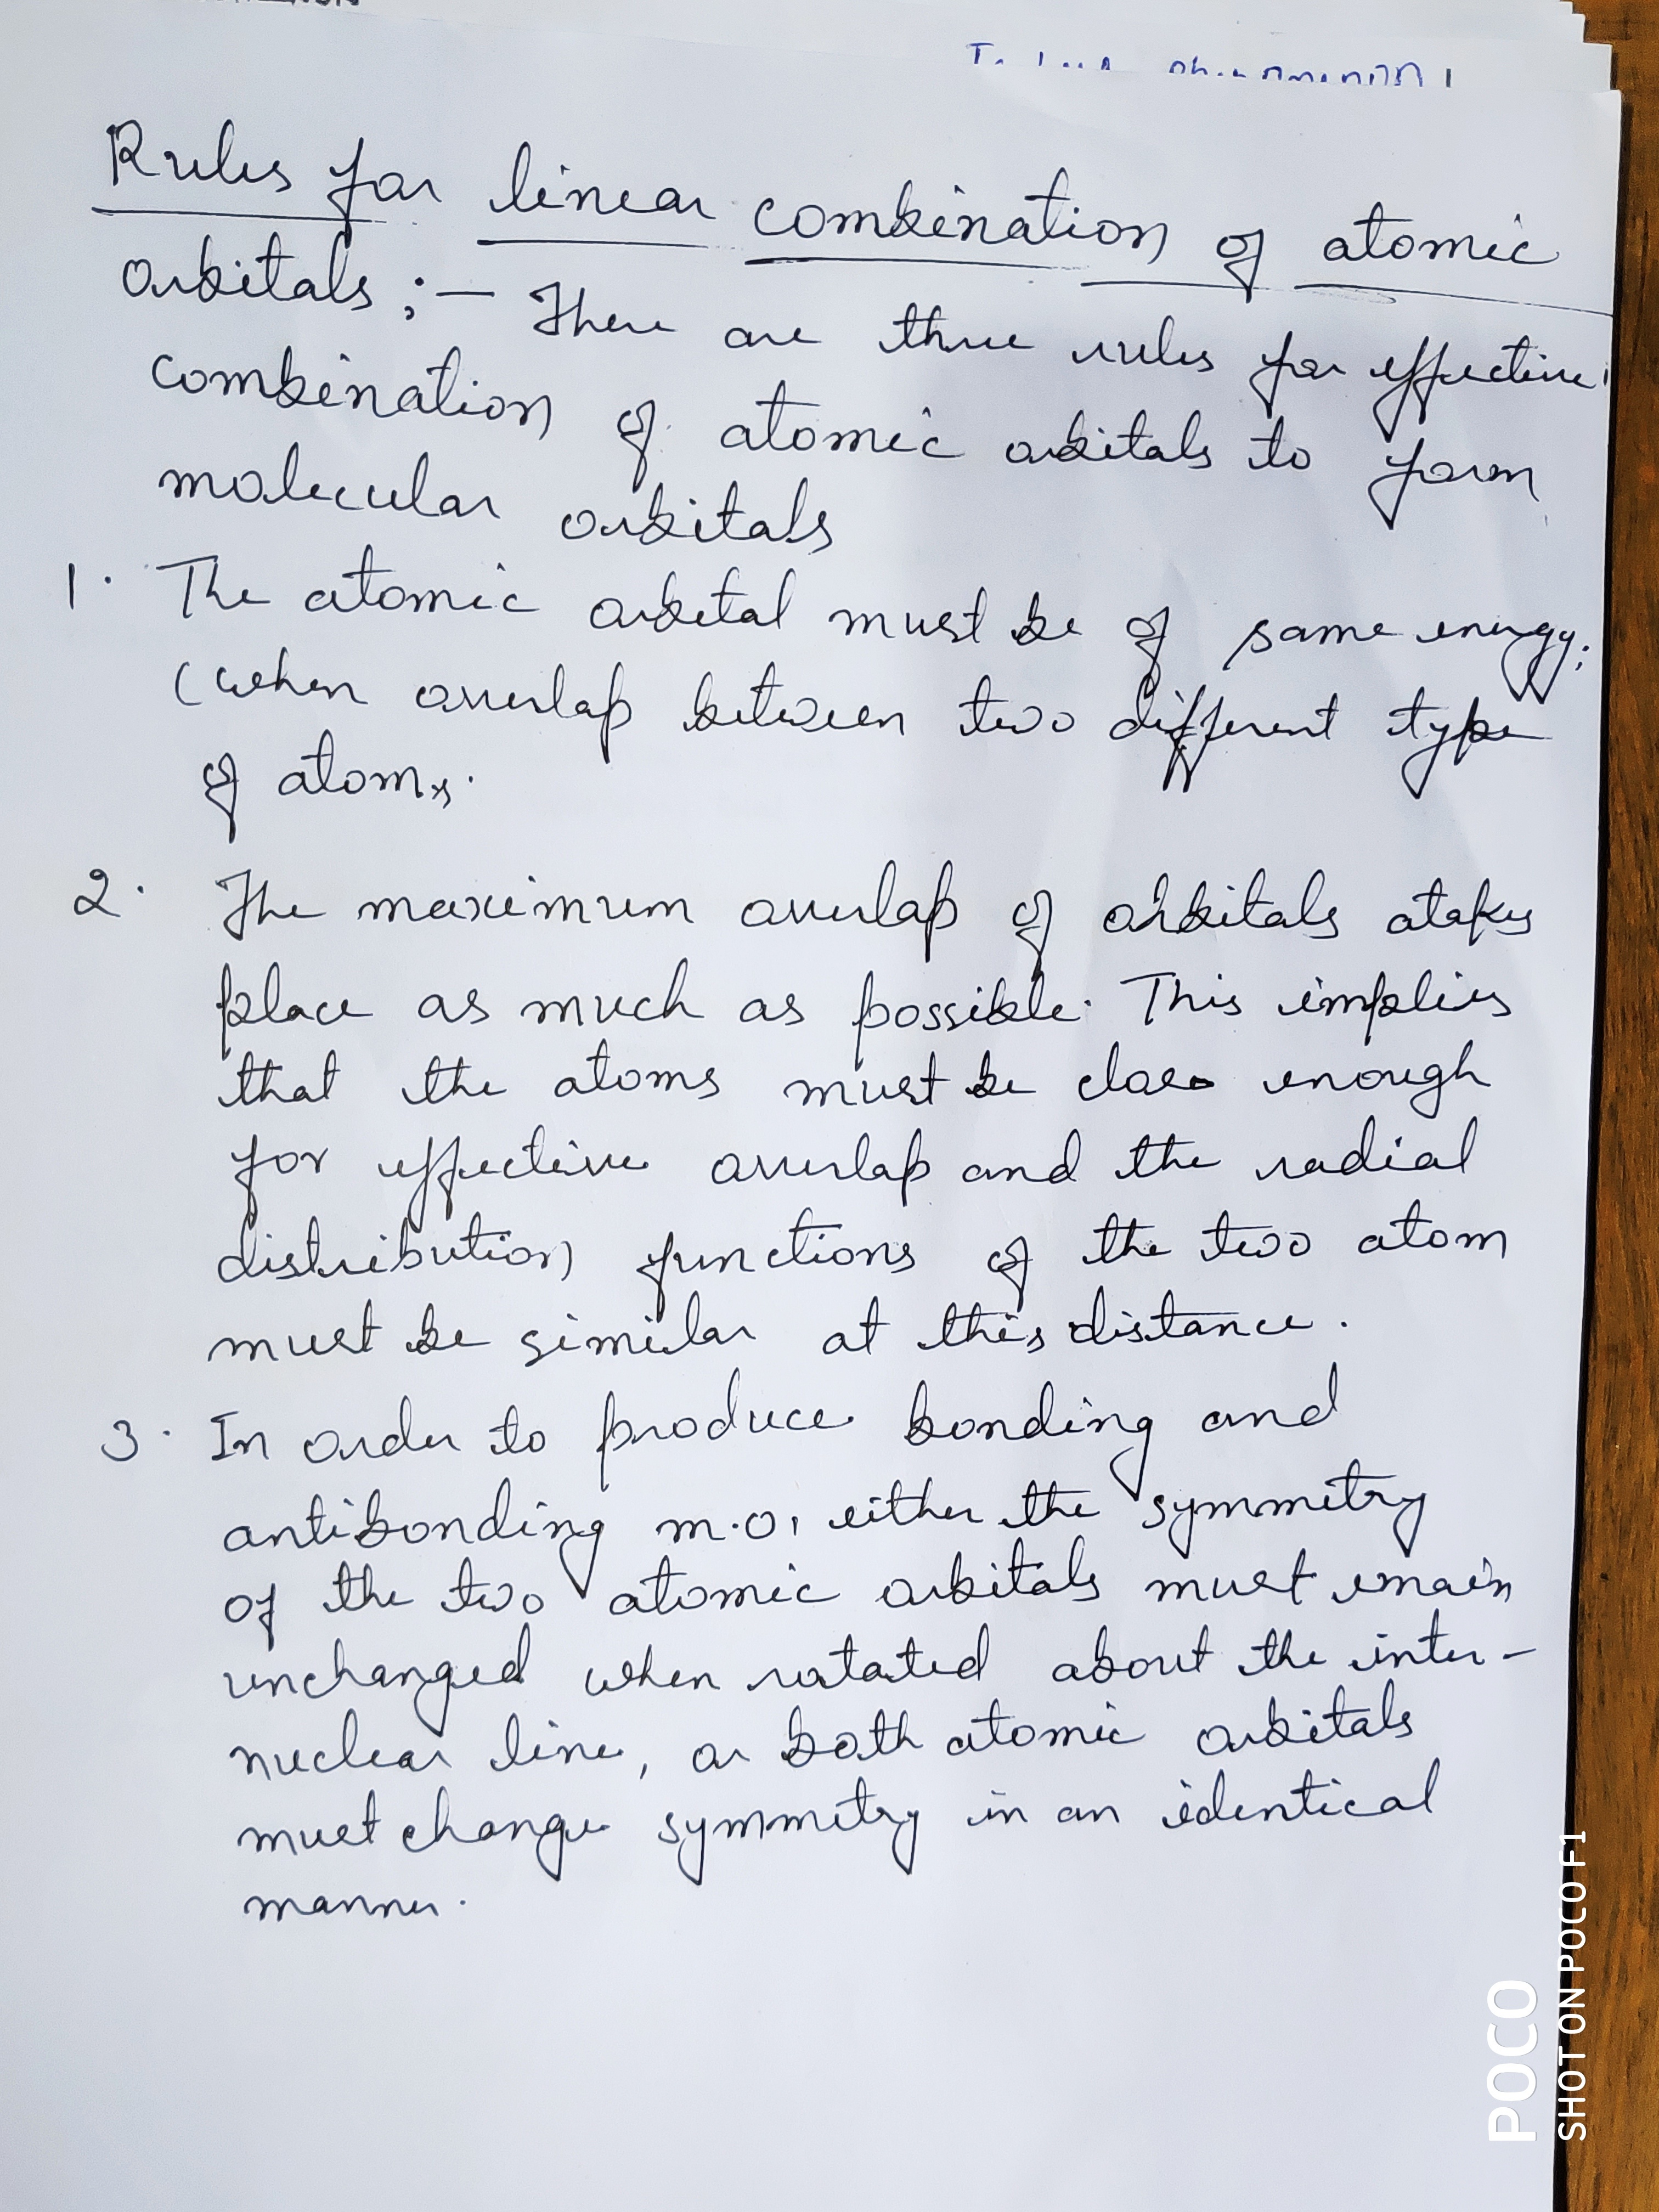 Rules for linear combination of atomic
orbitals ;- There are three rules for effective
combination of atomic orbitals to form
molecular orbitals
1. The atomic orbital must be of same energy;
(when overlap between two different type
of atoms.
2. The maximum overlap of orbitals takes
place as much as possible. This implies
that the atoms must be close enough
for effective overlap and the radial
distribution functions of the two atom
must be similar at this distance.
3. In order to produce bonding and
antibonding m.o, either the symmetry
of the two atomic orbitals must remain
unchanged when rotated about the inter-
nuclear line, or both atomic orbitals
must change symmetry in an identical
manner.
POCO
SHOT ON POCO F1